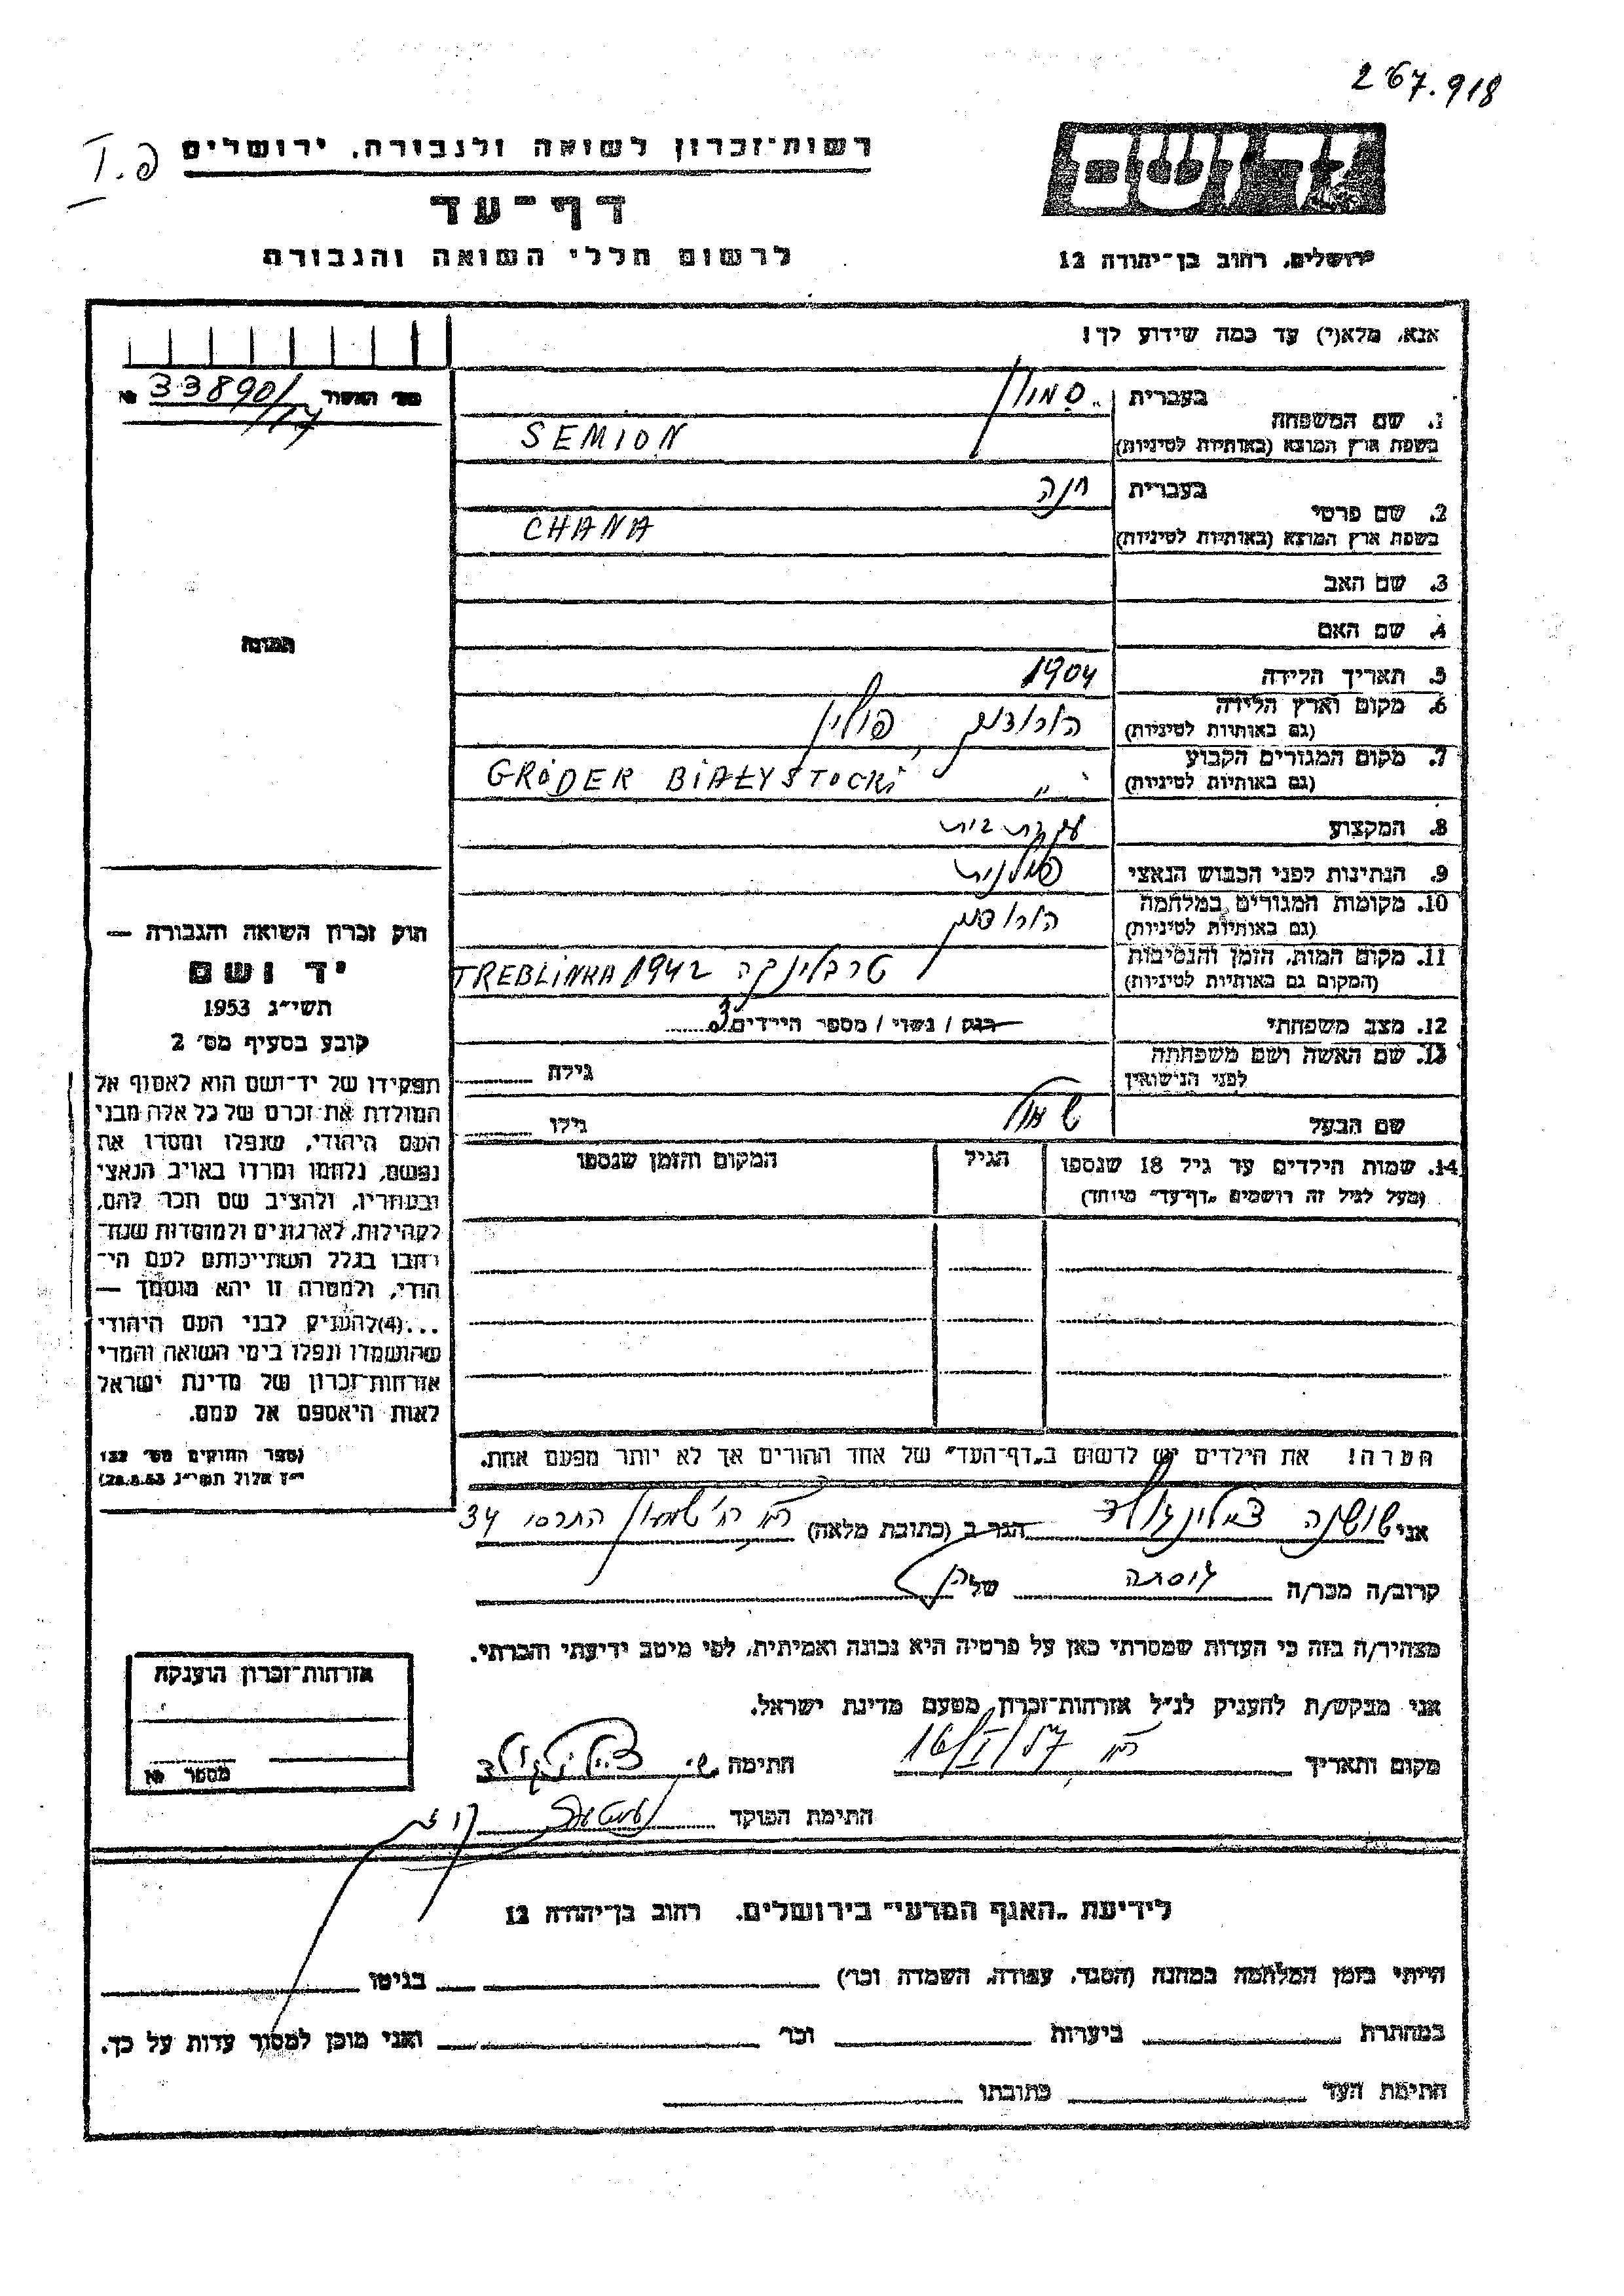 267.918
רשות־זכרון לשואה ולגבורה, ירושלים
I.פ
דף־עד
לרשום חללי השואה והגבורה
יד ושם
ירושלים, רחוב בן־יהודה 12
אנא, מלא(י) עד כמה שידוע לך!
מס׳ האשור 33890/ №
17
1. שם המשפחה
בעברית
בשפת ארץ המוצא (באותיות לטיניות)
SEMION
2. שם פרטי
בעברית חנה
בשפת ארץ המוצא (באותיות לטיניות)
CHANA
3. שם האב
4. שם האם
תמונה
5. תאריך הלידה 1904
6. מקום וארץ הלידה
(גם באותיות לטיניות)
הורודוק, פולין
7. מקום המגורים הקבוע
(גם באותיות לטיניות)
" GRÓDER BIAŁYSTOCKI
8. המקצוע עקרת בית
9. הנתינות לפני הכבוש הנאצי פולנית
10. מקומות המגורים במלחמה
(גם באותיות לטיניות)
הורודוק
11. מקום המות, הזמן והנסיבות
(המקום גם באותיות לטיניות)
טרבלינקה TREBLINKA 1942
12. מצב משפחתי
רווק / נשוי / מספר הילדים 3
13. שם האשה ושם משפחתה
לפני הנישואין
גילה
שם הבעל
גילו
14. שמות הילדים עד גיל 18 שנספו
(מעל לגיל זה רושמים „דף־עד״ מיוחד)
הגיל
המקום והזמן שנספו
חוק זכרון השואה והגבורה —
יד ושם
תשי״ג 1953
קובע בסעיף מס׳ 2
תפקידו של יד־ושם הוא לאסוף אל
המולדת את זכרם של כל אלה מבני
העם היהודי, שנפלו ומסרו את
נפשם, נלחמו ומרדו באויב הנאצי
ובעוזריו, ולהציב שם וזכר להם,
לקהילות, לארגונים ולמוסדות שנח־
רבו בגלל השתייכותם לעם הי־
הודי, ולמטרה זו יהא מוסמך —
...(4)להעניק לבני העם היהודי
שהושמדו ונפלו בימי השואה והמרי
אזרחות־זכרון של מדינת ישראל
לאות היאספם אל עמם.
(ספר החוקים מס׳ 132
י״ז אלול תשי״ג 28.8.53)
הערה! את הילדים יש לרשום ב„דף־העד״ של אחד ההורים אך לא יותר מפעם אחת.
אני שושנה הגר ב (כתובת מלאה) 34
קרוב/ה מכר/ה גיסתה של
מצהיר/ה בזה כי העדות שמסרתי כאן על פרטיה היא נכונה ואמיתית, לפי מיטב ידיעתי והכרתי.
אני מבקש/ת להעניק לנ״ל אזרחות־זכרון מטעם מדינת ישראל.
מקום ותאריך 16/I/57 חתימה
חתימת הפוקד
אזרחות־זכרון הוענקה
מספר №
לידיעת „האגף המדעי״ בירושלים, רחוב בן־יהודה 12
הייתי בזמן המלחמה במחנה (הסגר, עבודה, השמדה וכו׳) בגיטו
במחתרת ביערות וכו׳ ואני מוכן למסור עדות על כך.
חתימת העד כתובתו